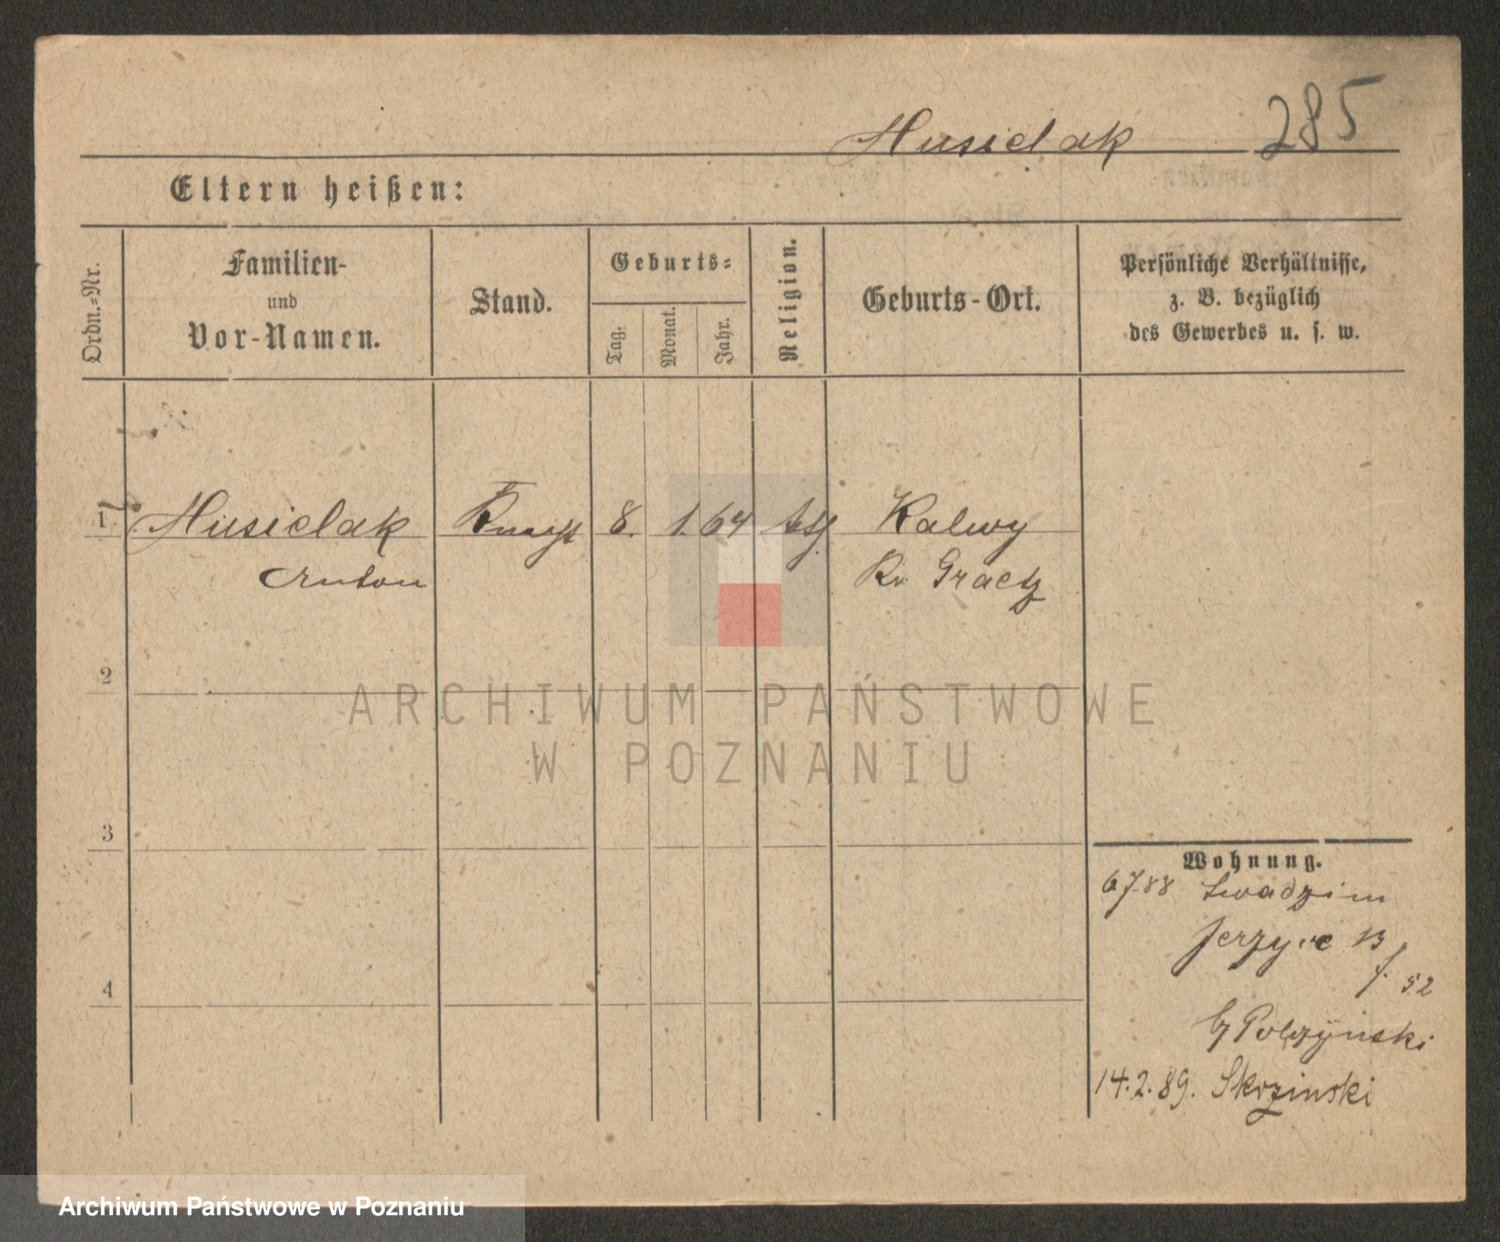 Husielak 285
Eltern heißen:
Ordn.-Nr.
Familien-
und
Vor-Namen.
Stand.
Geburts-
Tag.
Monat.
Jahr.
Religion.
Geburts-Ort.
Persönliche Verhältnisse,
z. B. bezüglich
des Gewerbes u. s. w.
1 Husielak Knecht 8. 1. 64 Kalwy
Anton Kr Graetz
2
3
4
Wohnung.
6 7.88
Jerzyce 13
52
14.2.89. Skrzinski
ARCHIWUM PAŃSTWOWE
W POZNANIU
Archiwum Państwowe w Poznaniu